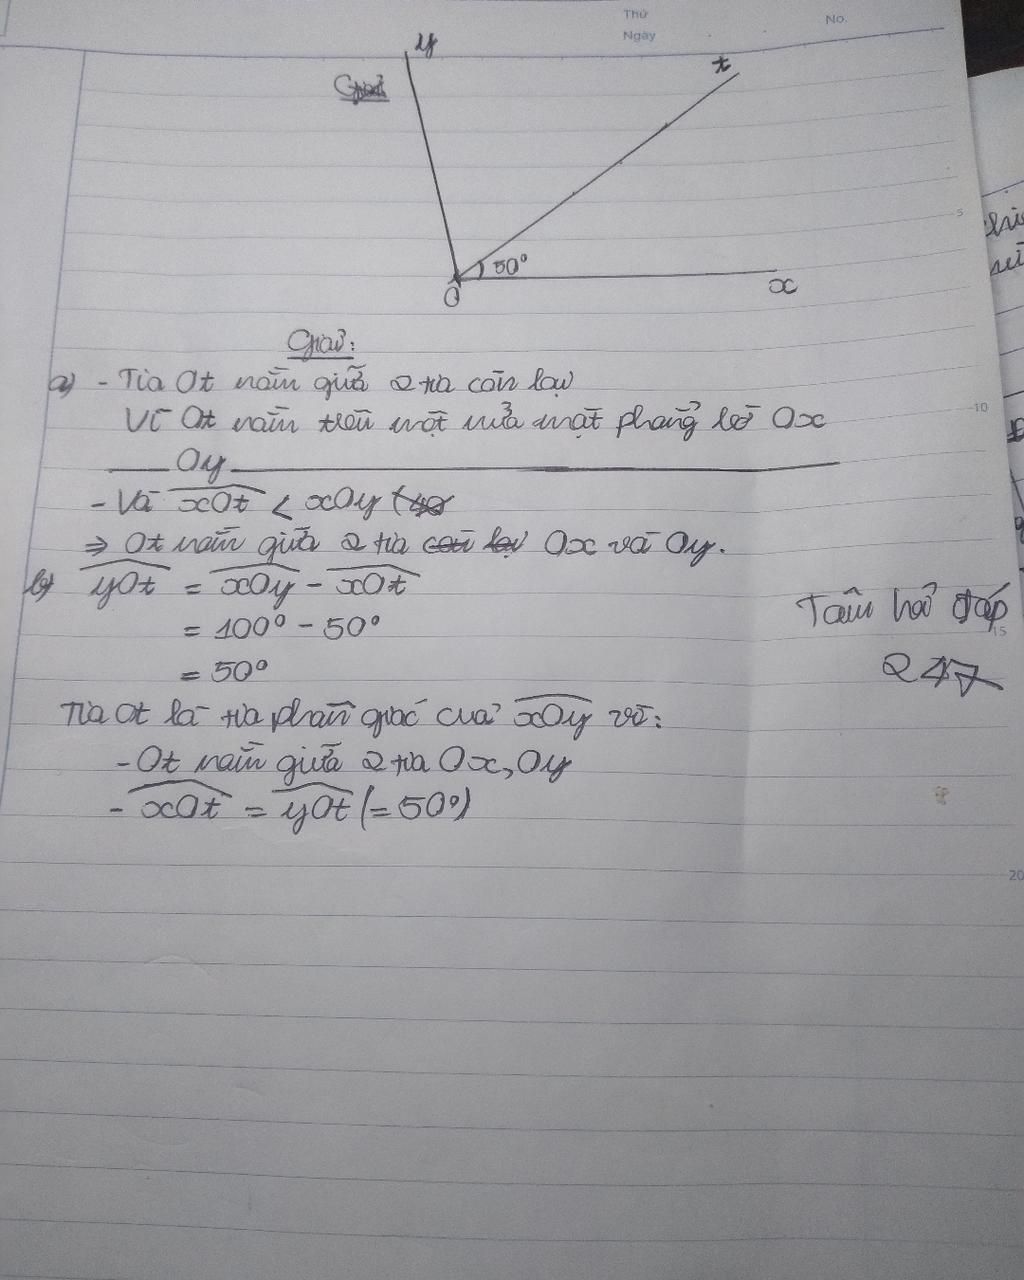 Thứ
Ngày
No.
y
t
50°
O
x
5
Giải:
a) - Tia Ot nằm giữa 2 tia còn lại
Vì Ot nằm trên một nửa mặt phẳng bờ Ox
10
Oy
- Và xOt < xOy
⇒ Ot nằm giữa 2 tia còn lại Ox và Oy.
b) yOt = xOy - xOt
= 100° - 50°
Tâm hỏi đáp
15
= 50°
247
Tia Ot là tia phân giác của xOy vì:
- Ot nằm giữa 2 tia Ox, Oy
- xOt = yOt (= 50°)
20